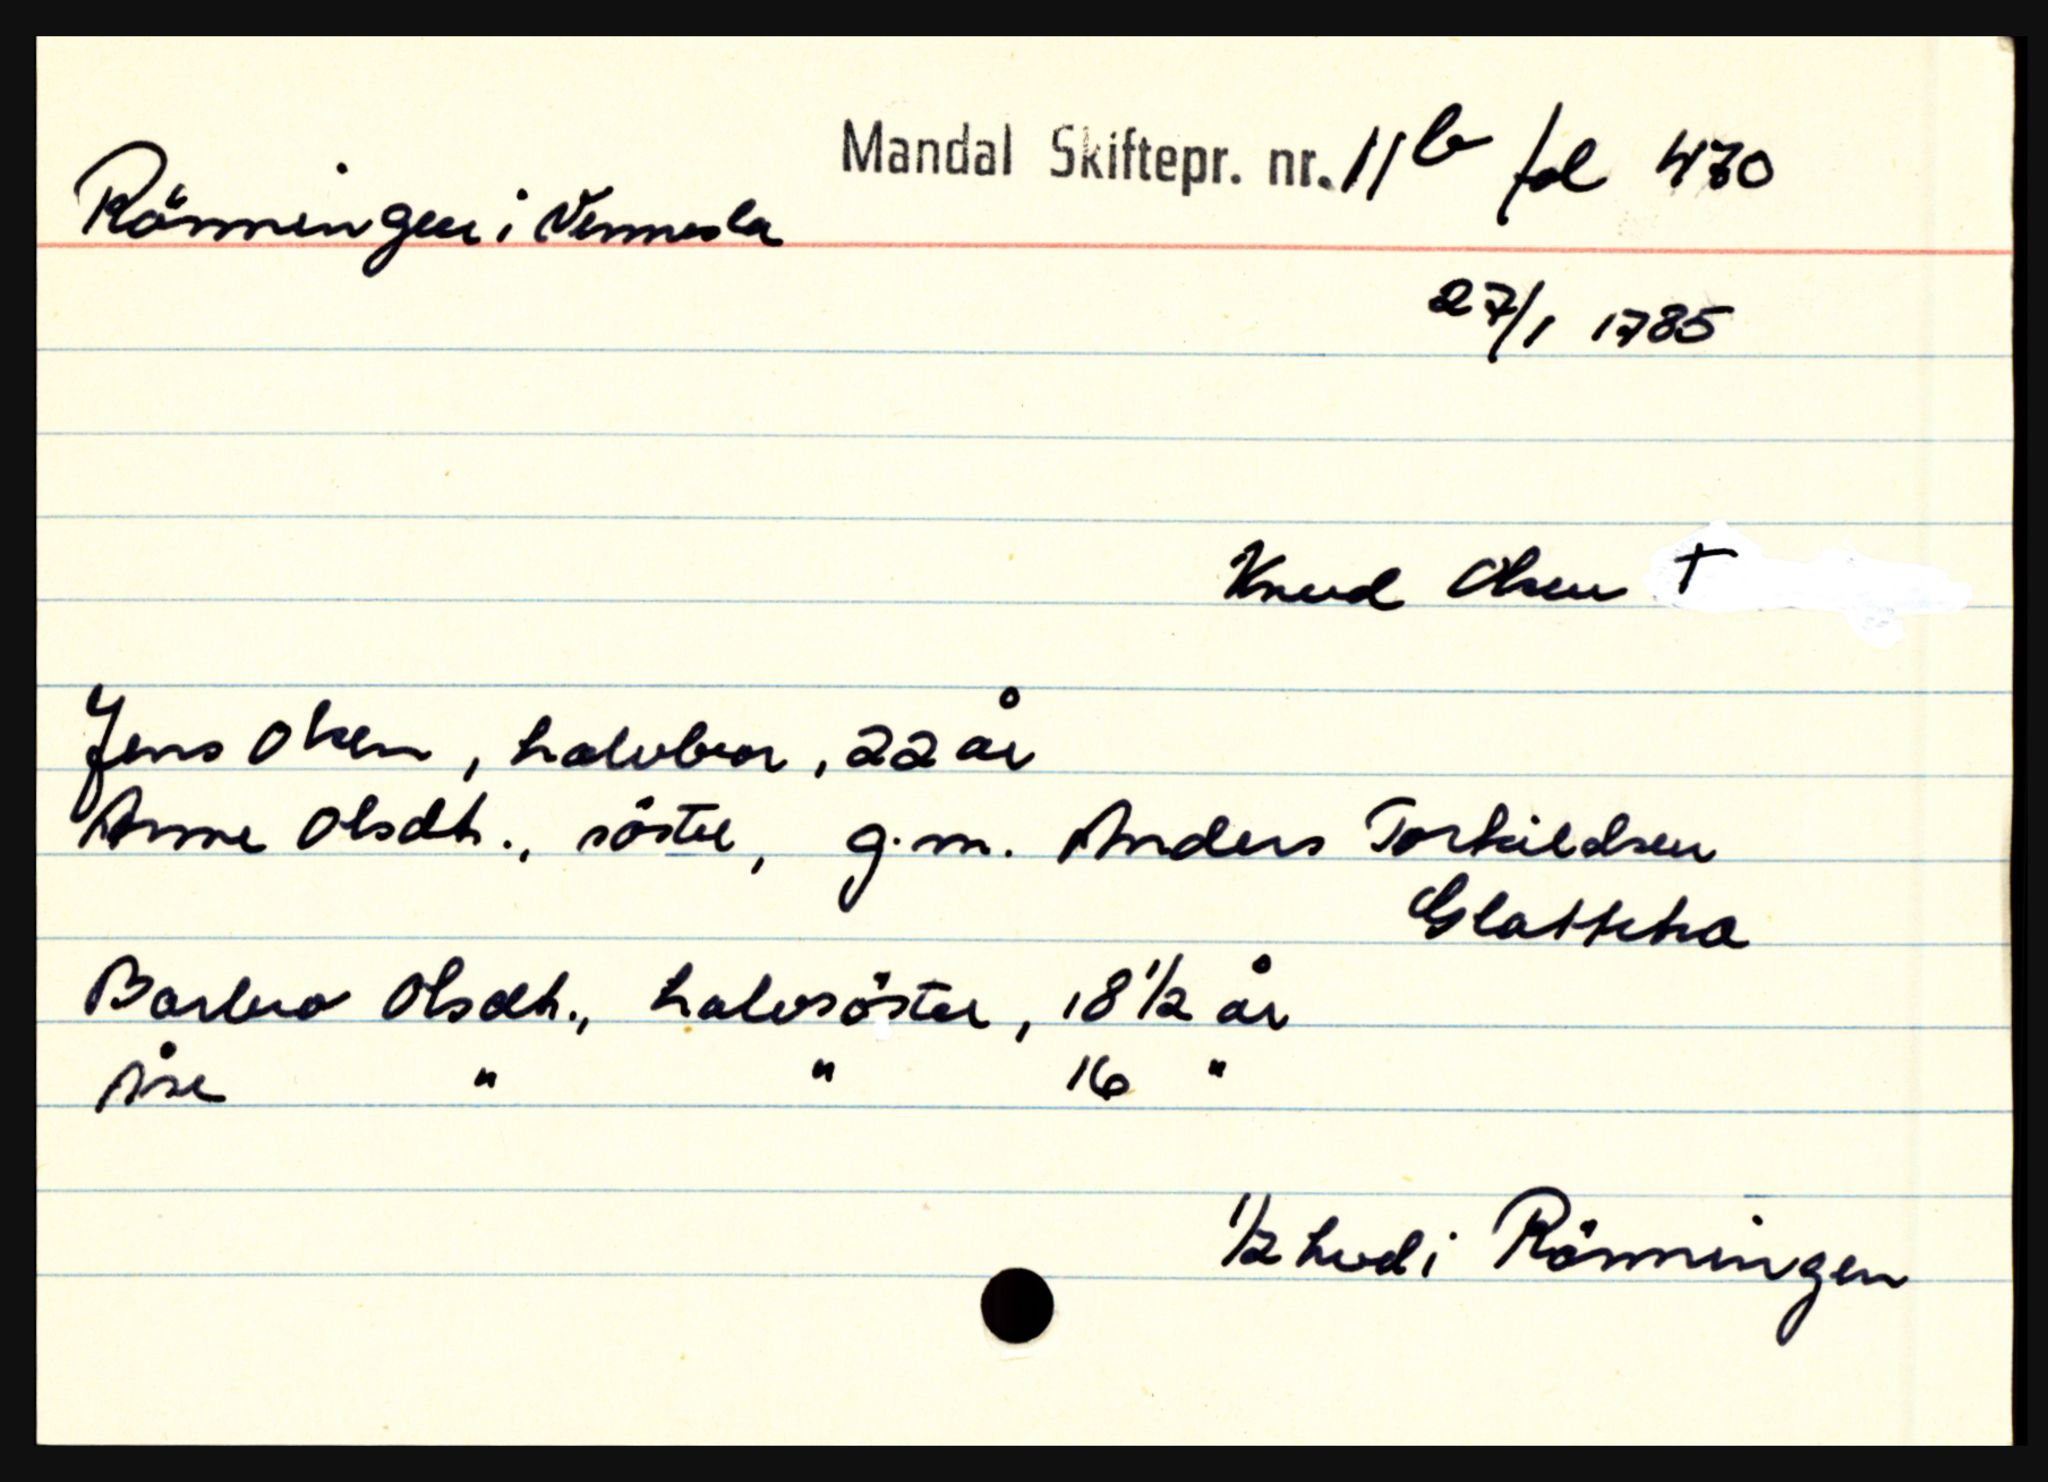 Mandal Skiftepr. nr. 11b fol 470
Rönningen i Vennesla
27/1 1785
Knud Olsen †
Jens Olsen, halvbror, 22 år
Anne Olsdtr., söster, g.m. Anders Torkildsen
Glattetra
Barbro Olsdtr., halvsöster, 18 1/2 år
Åse " " 16 "
1/2 hud i Rönningen